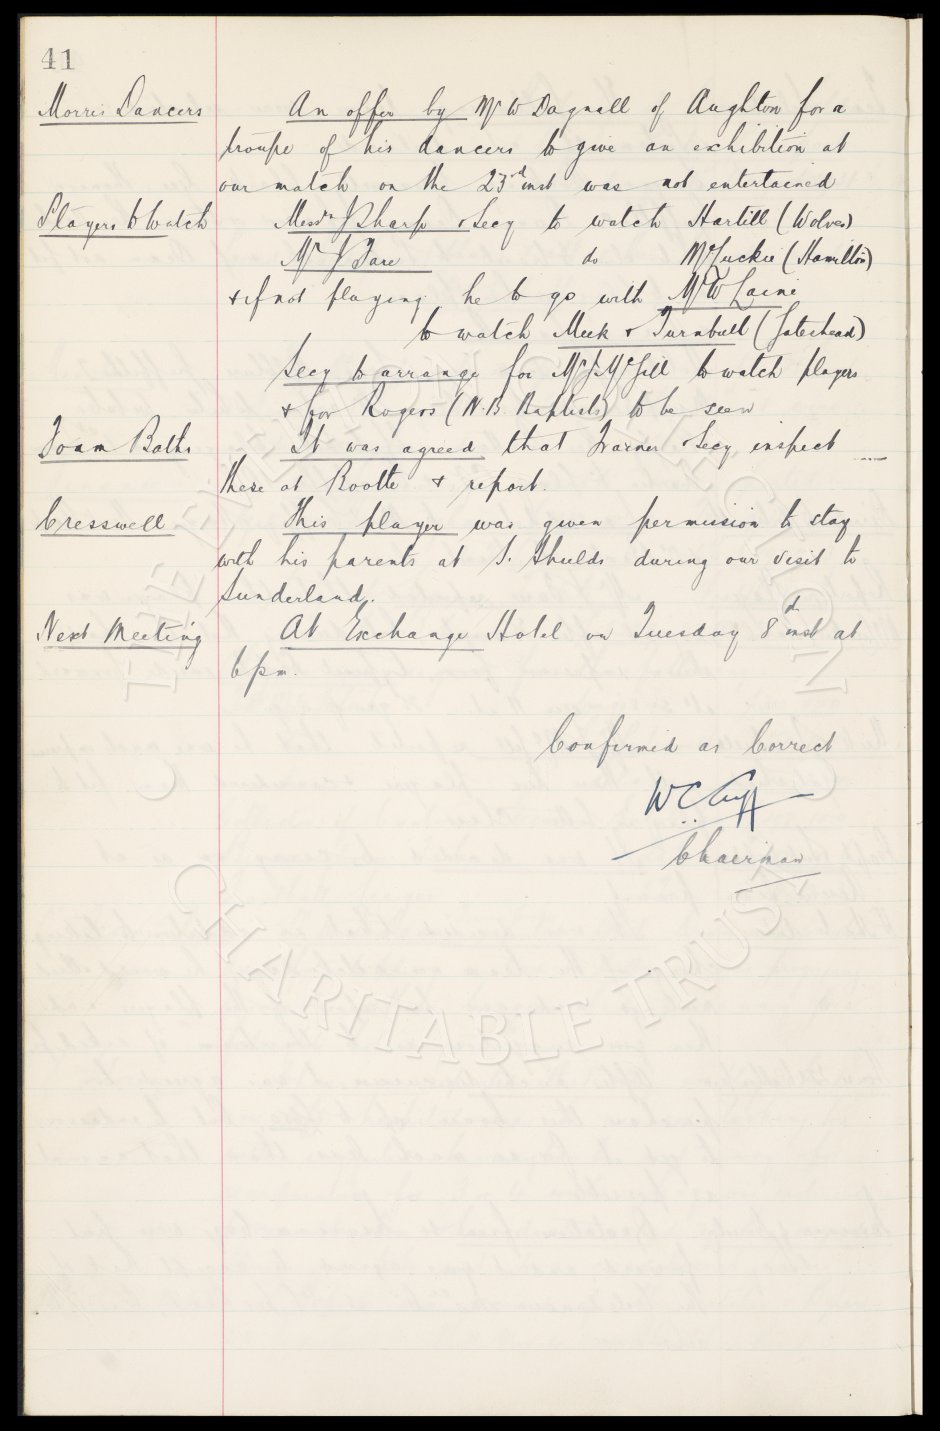 41
Morris Dancers An offer by Mr W Dagnall of Aughton for a
troupe of his dancers to give an exhibition at
our match on the 23rd inst was not entertained
Players to Watch Messrs J Sharp & Secy to watch Hartill (Wolves)
Mr J Fare do McLuckie (Hamilton)
& if not playing he to go with Mr W Laine
to watch Meek & Turnbull (Gateshead)
Secy to arrange for Mr J McGill to watch players
& for Rogers (N.B. Baptists) to be seen
Foam Baths It was agreed that Trainer & Secy inspect
these at Bootle & report.
Cresswell This player was given permission to stay
with his parents at S. Shields during our visit to
Sunderland.
Next Meeting At Exchange Hotel on Tuesday 8th inst at
6 pm.
Confirmed as Correct
W C Cuff
Chairman
THE EVERTON COLLECTION
CHARITABLE TRUST